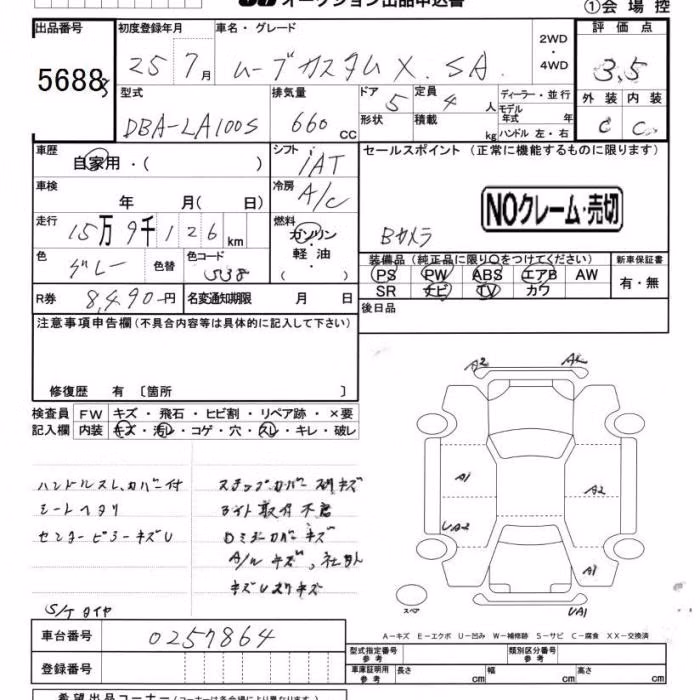 オークション出品申込書
①会場控
出品番号 初度登録年月 車名・グレード 評価点
5688 25 7月 ムーブカスタム X. SA 2WD・4WD 3,5
型式 排気量 ドア 定員 ディーラー・並行 外装 内装
DBA-LA100S 660 CC 5 4 人 モデル年式 年 C C
形状 積載 kg ハンドル 左・右
車歴 シフト セールスポイント (正常に機能するものに限ります)
自家用・( ) IAT
車検 冷房 NOクレーム・売切
年 月( 日) A/C
走行 燃料
15万9千126km ガソリン・軽油・( ) Bカメラ
色 色替 色コード 装備品 (純正品に限り○をつけてください) 新車保証書
グレー PS PW ABS エアB AW 有・無
R券 8,490円 名変通知期限 月 日 SR ナビ TV カワ
注意事項申告欄(不具合内容等は具体的に記入して下さい) 後日品
修復歴 有 〔箇所 〕
検査員 FW キズ・飛石・ヒビ割・リペア跡・×要
記入欄 内装 キズ・汚レ・コゲ・穴・スレ・キレ・破レ
A2
A1 A2
UA2
A1
UA1
ハンドルスレ、カバー付
シートヘタリ
センターピラーキズU
ステップ.カバー
ライト取付不良
A/W キズ、社外
S/T タイヤ
スペア
車台番号 0257864
登録番号
A-キズ E-エクボ U-凹み W-補修跡 S-サビ C-腐食 XX-交換済
型式指定番号 参考 類別区分番号 参考
車庫証明用 参考 長さ cm 幅 cm 高さ cm
希望出品コーナー(コーナーは各会場により異なります)